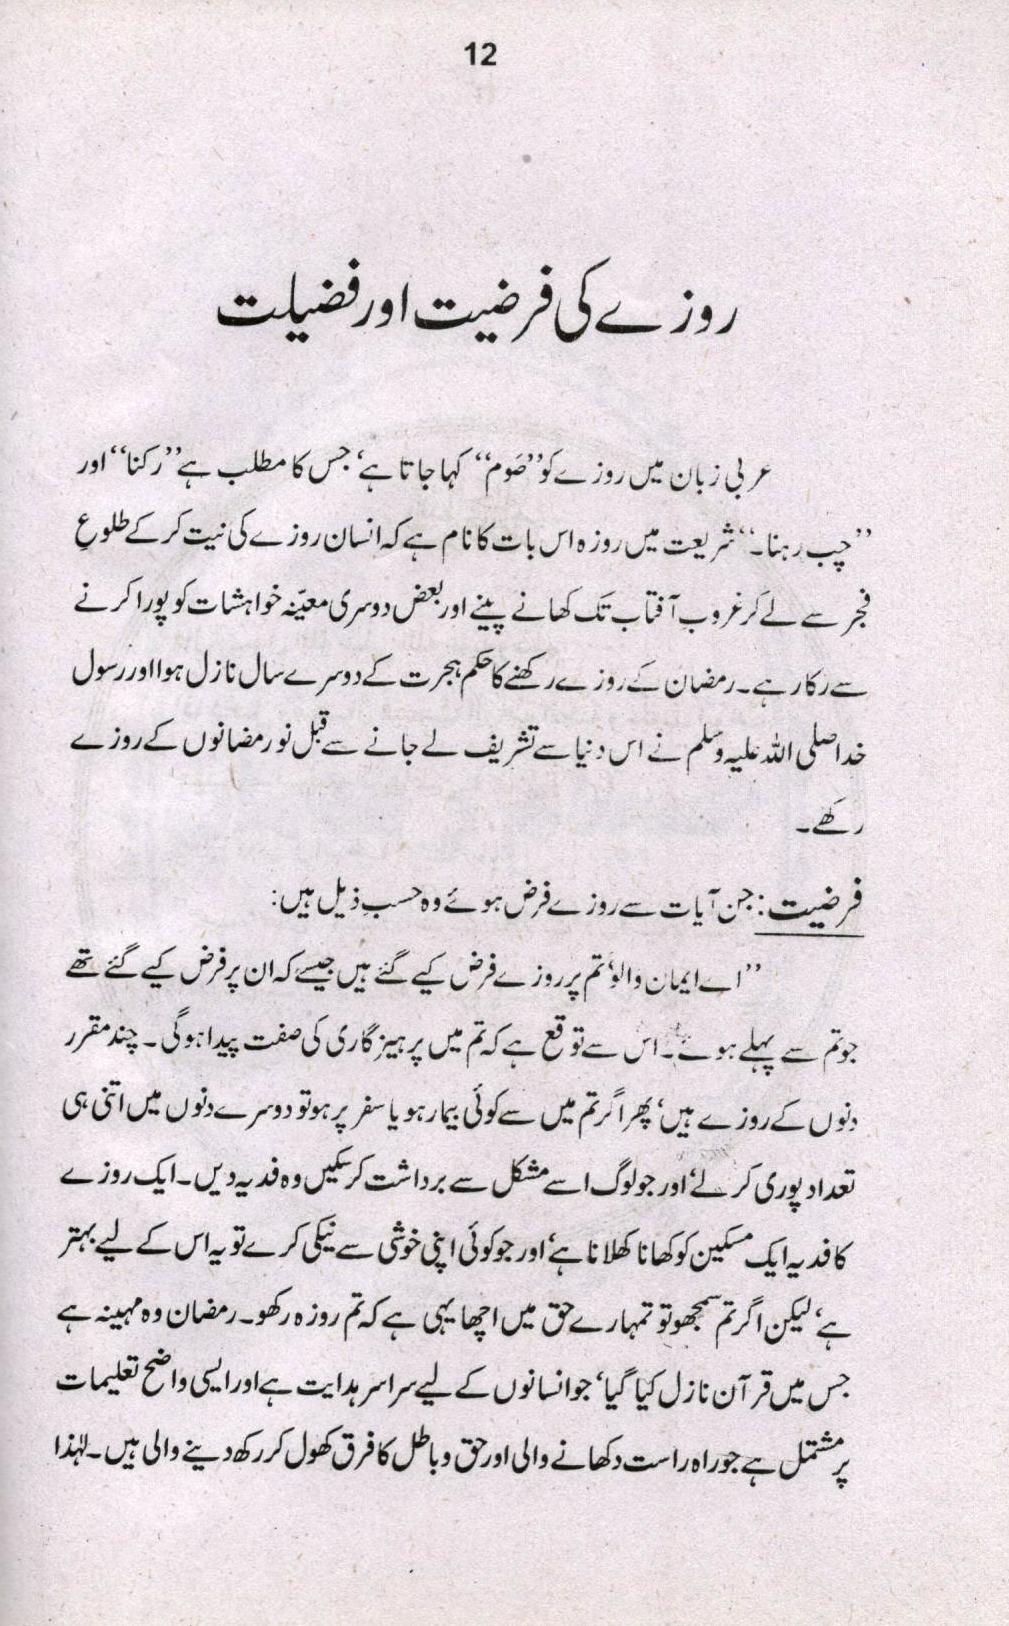 12
روزے کی فرضیت اور فضیلت
عربی زبان میں روزے کو ’’صَوم‘‘ کہا جاتا ہے‘ جس کا مطلب ہے ’’رکنا‘‘ اور
’’چپ رہنا۔‘‘ شریعت میں روزہ اس بات کا نام ہے کہ انسان روزے کی نیت کر کے طلوعِ
فجر سے لے کر غروبِ آفتاب تک کھانے پینے اور بعض دوسری معیّنہ خواہشات کو پورا کرنے
سے رکا رہے۔ رمضان کے روزے رکھنے کا حکم ہجرت کے دوسرے سال نازل ہوا اور رسول
خدا صلی اللہ علیہ وسلم نے اس دنیا سے تشریف لے جانے سے قبل نو رمضانوں کے روزے
رکھے۔
فرضیت: جن آیات سے روزے فرض ہوئے وہ حسبِ ذیل ہیں:
’’اے ایمان والو‘ تم پر روزے فرض کیے گئے ہیں جیسے کہ ان پر فرض کیے گئے تھے
جو تم سے پہلے ہوئے۔ اس سے توقع ہے کہ تم میں پرہیز گاری کی صفت پیدا ہوگی۔ چند مقرر
دنوں کے روزے ہیں‘ پھر اگر تم میں سے کوئی بیمار ہو یا سفر پر ہو تو دوسرے دنوں میں اتنی ہی
تعداد پوری کر لے‘ اور جو لوگ اسے مشکل سے برداشت کر سکیں وہ فدیہ دیں۔ ایک روزے
کا فدیہ ایک مسکین کو کھانا کھلانا ہے‘ اور جو کوئی اپنی خوشی سے نیکی کرے تو یہ اس کے لیے بہتر
ہے‘ لیکن اگر تم سمجھو تو تمہارے حق میں اچھا یہی ہے کہ تم روزہ رکھو۔ رمضان وہ مہینہ ہے
جس میں قرآن نازل کیا گیا‘ جو انسانوں کے لیے سراسر ہدایت ہے اور ایسی واضح تعلیمات
پر مشتمل ہے جو راہ راست دکھانے والی اور حق و باطل کا فرق کھول کر رکھ دینے والی ہیں۔ لہٰذا